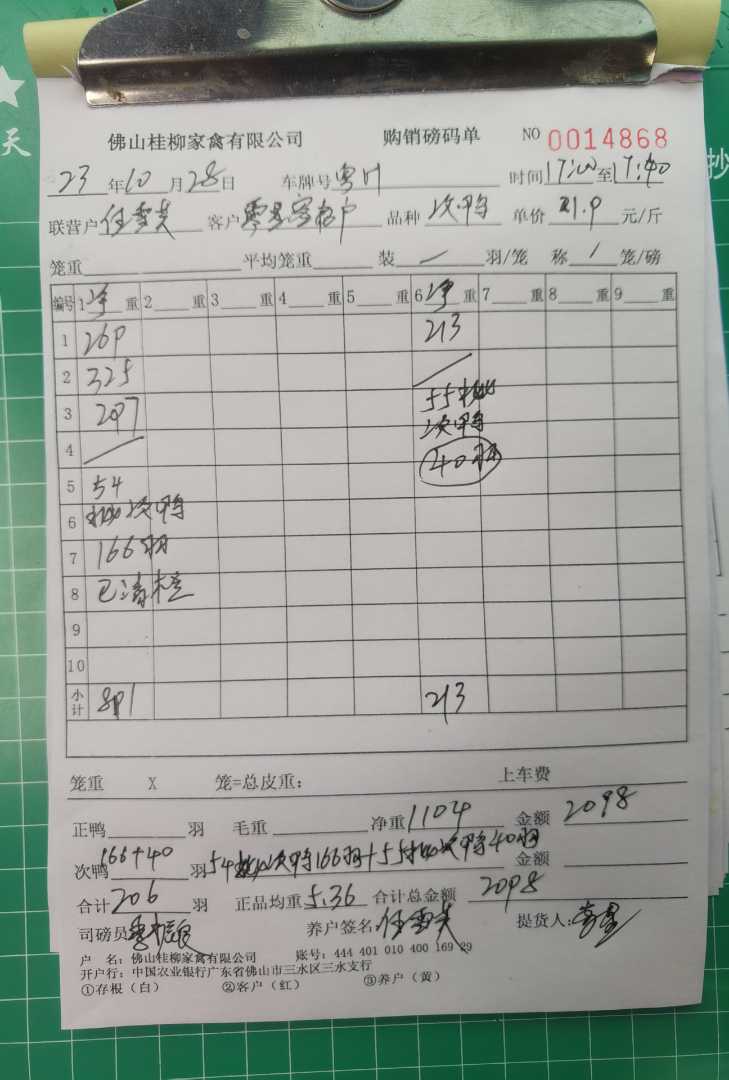 佛山桂柳家禽有限公司 购销磅码单 NO 0014868
23年10月28日 车牌号粤 时间17:00至17:40
联营户任雪芳 客户零星客户 品种次鸭 单价1.9元/斤
笼重 平均笼重 装/羽/笼 称/笼/磅
编号 1净重 2重 3重 4重 5重 6净重 7重 8重 9重
1 269 213
2 325 /
3 297 55批
次鸭
4 / 40羽
5 54
6 批次鸭
7 166羽
8 已清栏
9
10
小计 891 213
笼重 X 笼=总皮重: 上车费
正鸭 羽 毛重 净重1104 金额2098
次鸭166+40羽 54批次鸭166羽+55批次鸭40羽 金额
合计206羽 正品均重5.36 合计总金额2098
司磅员 养户签名:任雪芳 提货人:
户 名: 佛山桂柳家禽有限公司 账号: 444 401 010 400 169 29
开户行: 中国农业银行广东省佛山市三水区三水支行
①存根(白) ②客户(红) ③养户(黄)
天
抄